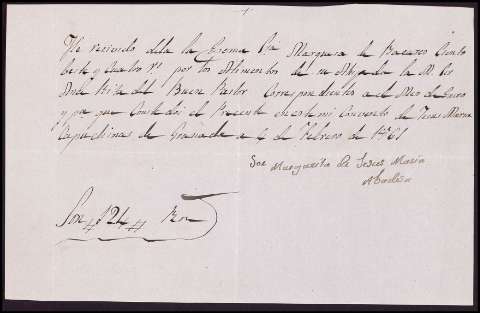 He recivido de la Exma Sra Marquesa de Ciento
beite y Cuatro rs por los Alimentos de su Ahijada la M. Sor
Rita del Buen Pastor Correspondientes a el Mes de Enero
y pa que Conste doi el Presente en este mi Convento de Jesus Maria
Capuchinas de Granada a 4 de Febrero de 1861
Sor Margarita de Jesus Maria
Abadesa
Son # 124 # Ron